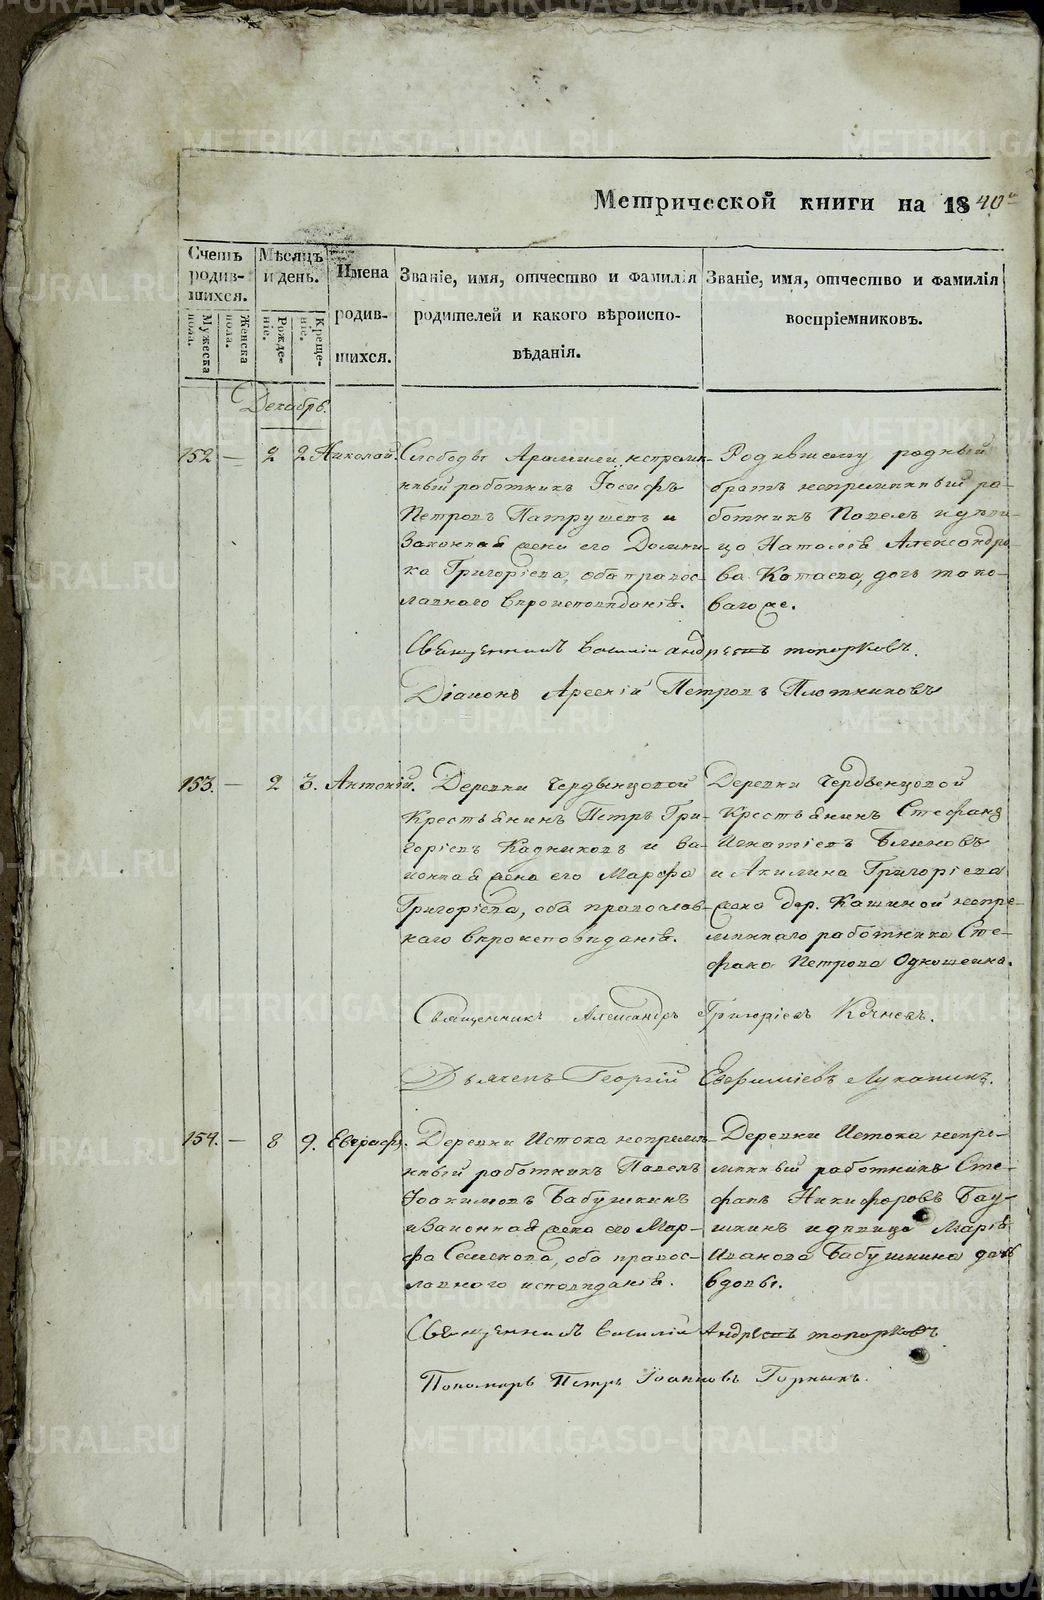 Метрической книги на 1840й
Счетъ родив-шихся.
Мѣсяцъ и день.
Имена родив-шихся.
Званіе, имя, отчество и фамилія родителей и какого вѣроиспо-вѣданія.
Званіе, имя, отчество и фамилія воспріемниковъ.
Мужеска пола.
Женска пола.
Рожде-ніе.
Креще-ніе.
Декабрь.
152 — 2 2 Николай.
Слободы Арамили непремѣ-
нный работникъ Іосифъ
Петровъ Патрушевъ и
законная жена его Домни-
ка Григоріева, оба правос-
лавнаго вѣроисповѣданія.
Родившему родный
братъ непремѣнный ра-
ботникъ Павелъ и дѣви-
ца Наталія Александро-
ва Катаева, дочь тако-
ваго же.
Священникъ Василій Андреевъ Топорковъ.
Діаконъ Арсеній Петровъ Плотниковъ
153. — 2 3. Антоній.
Деревни Чердынцовой
Крестьянинъ Петръ Гри-
горіевъ Кадниковъ и за-
конная жена его Марфа
Григоріева, оба православ-
наго вѣроисповѣданія.
Деревни Чердынцовой
Крестьянинъ Стефанъ
Игнатіевъ Блиновъ
и Акилина Григоріева
жена дер. Кашиной непре-
мѣннаго работника Сте-
фана Петрова Одношеина.
Священникъ Александръ Григоріевъ Кочневъ.
Дьячекъ Георгій Евфиміевъ Луканинъ.
154. — 8 9. Евграфъ.
Деревни Истока непремѣ-
нный работникъ Павелъ
Іоакимовъ Бабушкинъ
и Законная жена его Мар-
фа Семенова, оба правос-
лавнаго исповѣданія.
Деревни Истока непре-
мѣнный работникъ Сте-
фанъ Никифоровъ Бау-
шкинъ и дѣвица Марія
Иванова Бабушкина дочь
вдовы.
Священникъ Василій Андреевъ Топорковъ
Пономарь Петръ Іоанновъ Горныхъ.
METRIKI.GASO-URAL.RU